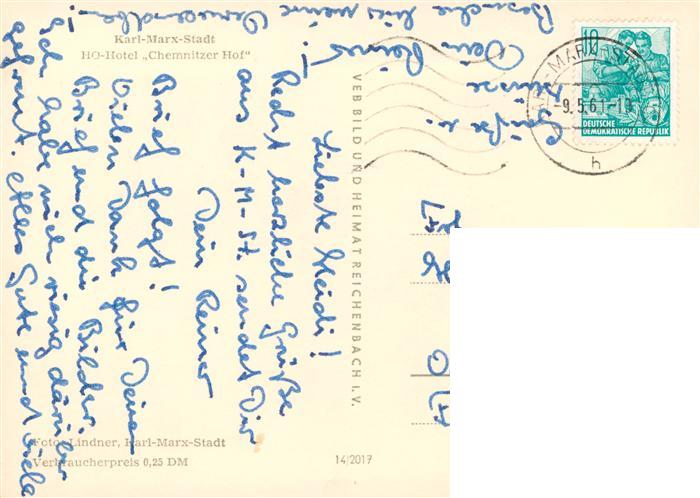 Karl-Marx-Stadt
HO-Hotel „Chemnitzer Hof"
Liebste Heidi!
Recht herzliche Grüße
aus K-M-St. sendet Dir
Dein Reiner
Brief folgt!
Vielen Dank für Deinen
Brief und die Bilder.
Ich habe mich riesig darüber
gefreut. Alles Gute und viele
Grüße u.
Küsse
Dein Reiner
VEB BILD UND HEIMAT REICHENBACH I. V.
Foto: Lindner, Karl-Marx-Stadt
Verbraucherpreis 0,25 DM
14/2017
10
DEUTSCHE
DEMOKRATISCHE REPUBLIK
KARL-MARX-STADT
-9.5.61-19
h